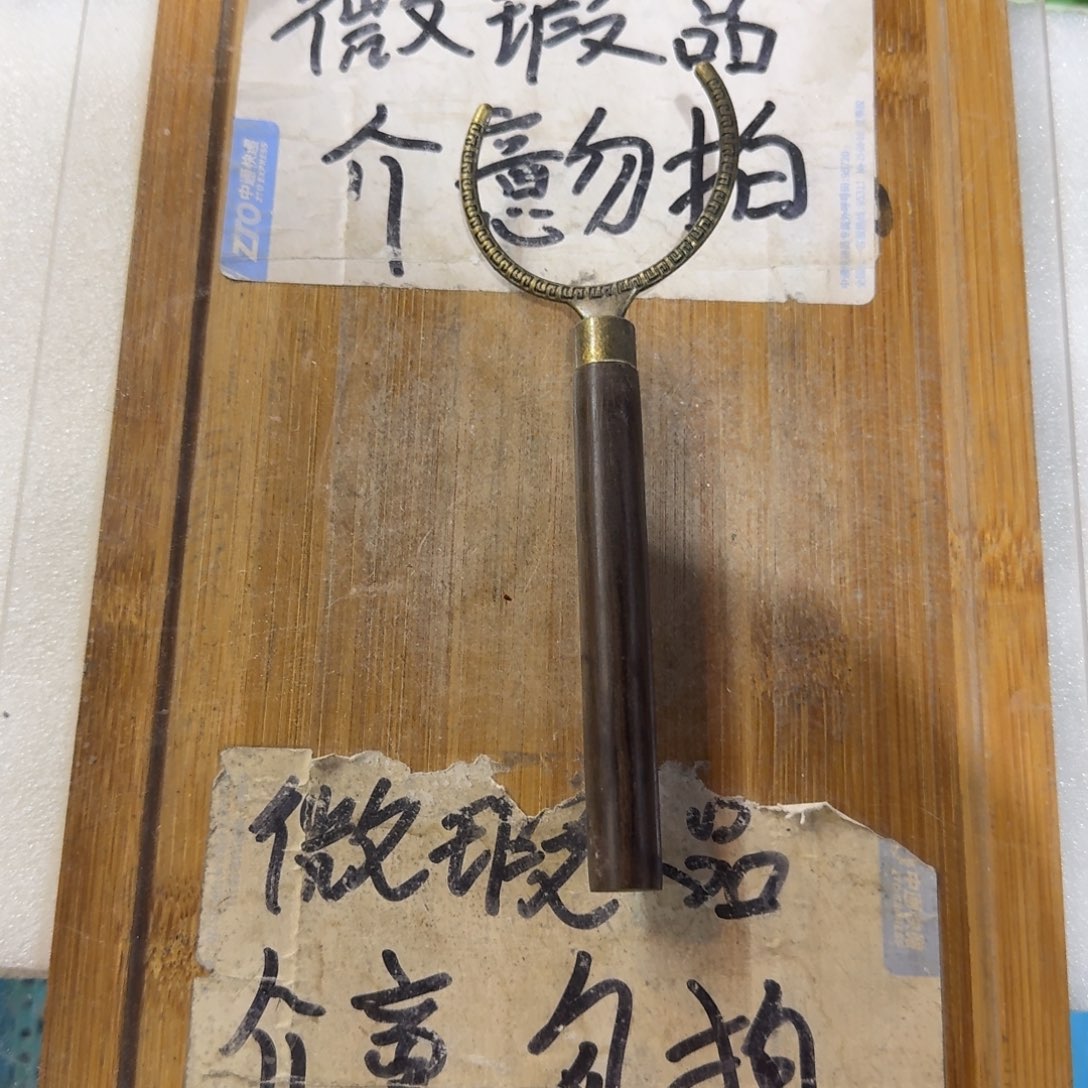 微瑕品
介意勿拍
ZTO 中通快递
ZTO EXPRESS
微瑕品
介意勿拍